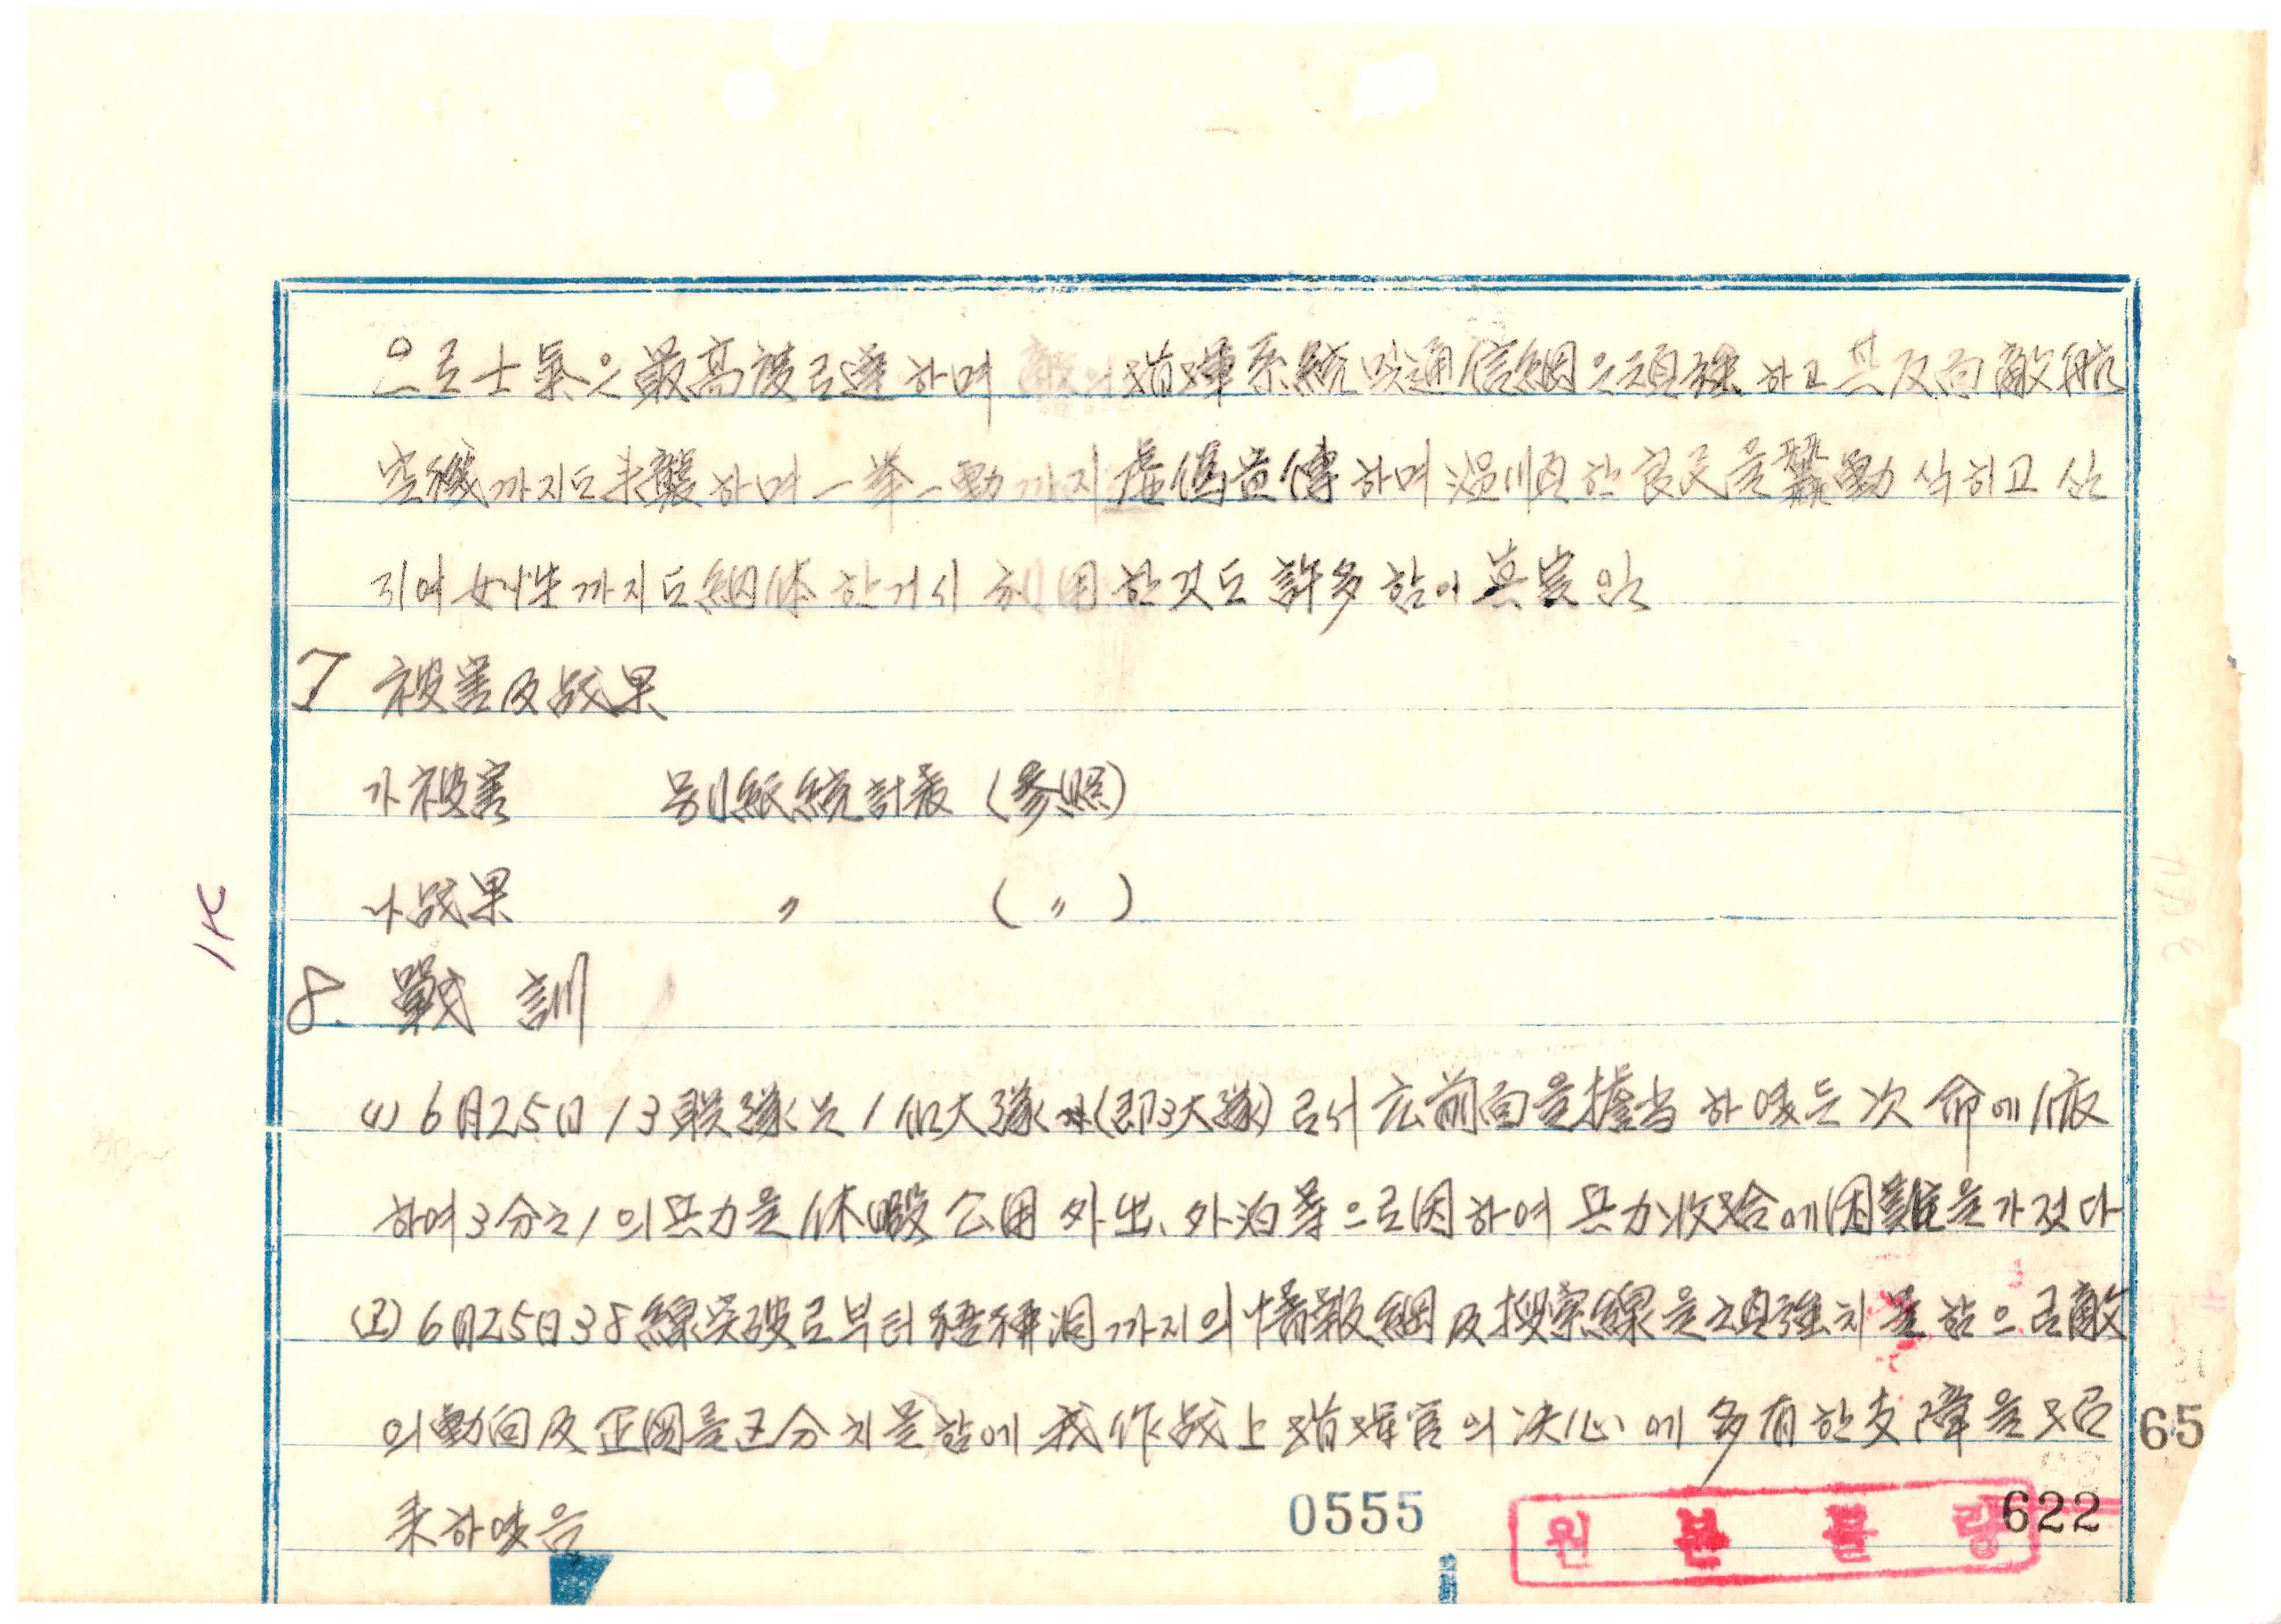 으로 士氣은 最高度로 達하며 敵의 指揮系統 및 通信網은 頑强하고 其反面 敵航
空機까지도 來襲하며 一挙一動까지 虛僞宣傳하며 溫順한 良民을 蠢動식히고 심
지여 女性까지도 綱体한거시 利用한것도 許多함이 其実임
7 被害及战果
가 被害 別紙統計表 (参照)
나 战果 〃 ( 〃 )
8. 戰 訓
(1) 6月25日 13联隊는 1個大隊 (即3大隊)로서 広前面을 擔当하였든 次 命에 依
하여 3分之1의 兵力을 休暇 公用 外出、外泊等으로 因하여 兵力收拾에 困難을 가젔다
(2) 6月25日 38線突破로부터 까지의 情報網及搜索線을 頑强치 몯함으로 敵
의 動向及 企図를 区分치 몯함에 我作战上 指揮官의 决心에 多有한 支障을 招
来하였음
1K
65
0555
622
원 본 불 량